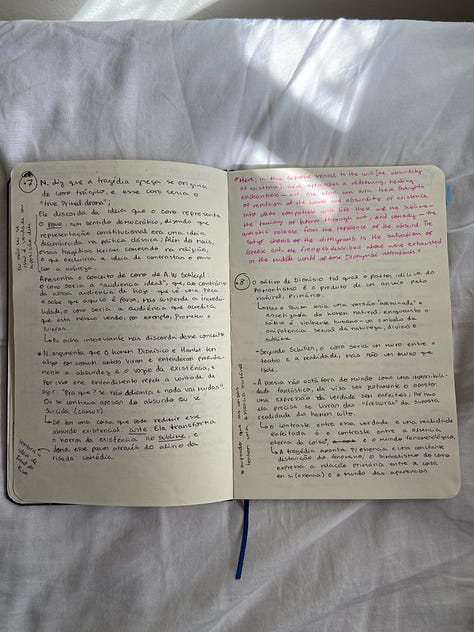 .7 N. diz que a tragédia grega se origina
do coro trágico, e esse coro seria o
"true Primal drama";
Ele discorda da ideia que o coro representa
o povo, num sentido democrático, dizendo que
representação constitucional era uma ideia
desconhecida na política clássica; Além do mais,
essas tragédias teriam começado na religião,
o que excluiria a ideia de contrastar o povo
com a nobreza.
Apresenta o conceito de coro de A.W. Schlegel:
o coro seria a "audiência ideal", que, ao contrário
da nossa audiência de hoje que vê uma peça
e sabe que aquilo é farsa, mas suspende a incredu-
lidade, o coro seria a audiência que acredita
que está mesmo vendo, por exemplo, Prometeu e
ninfas.
↳ N. acha interessante mas discorda desse conceito
N. argumenta que o homem Dionísico e Hamlet tem
algo em comum: ambos viram e entenderam profunda-
mente a absurdez e o vazio da existência, e
por ter esse entendimento repele a vontade de
agir: "Pra que? se não adianta e nada vai mudar".
Ou se continua apesar do absurdo ou se
suicida (camus)
↳ Só tem uma coisa que pode redimir esse
absurdo existencial: arte. Ela transforma
o horror da existência no sublime, e
doma esse pavor através do alívio da
risada, comédia
"Here, in this supreme menace to the will (the absurdity
of existence), there approaches a redeeming, healing
enchantress—art. She alone can turn these thoughts
of revulsion at the horror and absurdity of existence
into ideas compatible with life: these are the sublime—
the taming of horror through art; and comedy—the
artistic release from the repellence of the absurd. The
satyr chorus of the dithyramb is the salvation of
Greek art; the frenzies described above were exhausted
in the middle world of these Dionysiac attendants."
.8 O sátiro de Dionísio tal qual o pastor idílico do
Romantismo é o produto de um anseio pelo
natural, primário.
mas o pastor seria uma versão
do homem natural, enquanto o
sátiro é
onipotência sexual da natureza, divino e
sublime
Segundo Schiller, o coro seria um muro entre o
teatro e a realidade, mas não um muro que
isole.
A poesia não está fora do mundo como uma impossibili-
dade fantástica, ela visa ser justamente o oposto:
uma expressão da verdade sem enfeites, por isso
ela precisa se livrar das da suposta
realidade do homem culto.
↳ O contraste entre essa verdade e uma realidade
enfeitada é o contraste entre a essência
eterna da coisa, e o mundo fenomenológico,
↳ A tragédia aponta p/ essência e uma constante
destruição do fenômeno, o simbolismo do coro
expressa a relação primária entre a coisa
em si (essência) e o mundo das aparências